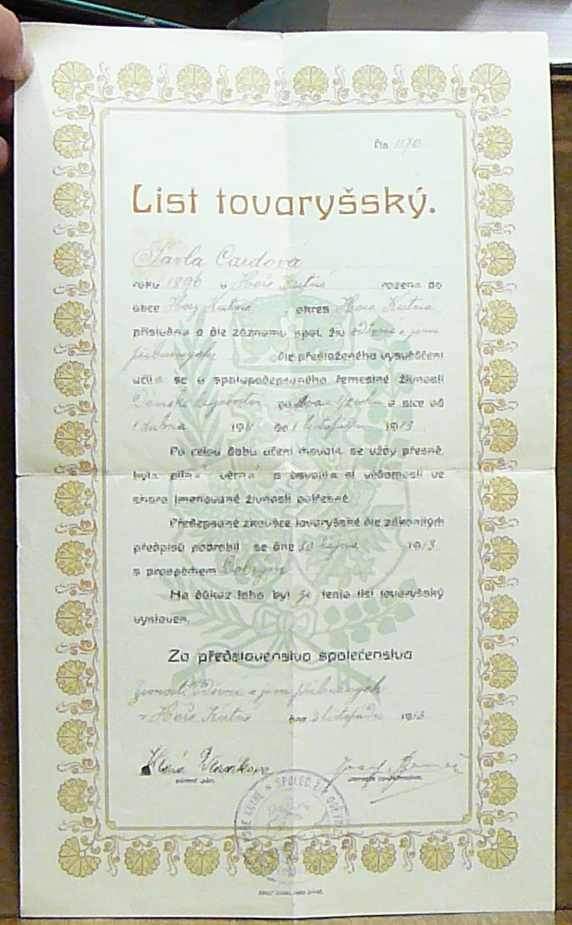 List tovaryšský.
Pavla Cardova
roku 1896 v Hoře Kutné rozena do
obce Hory Kutné okres Hora Kutná
příslušna a dle záznamu spol. živ. oděvní a jim
příbuzných dle předloženého vysvědčení
učila se u spolupodepsaného řemeslné živnosti
po a sice od
1 dubna 191 do 1 listopadu 1913
Po celou dobu učení chovala se vždy přesně,
byla pilna věrna a osvojila si vědomosti ve
shora jmenované živnosti potřebné.
Předepsané zkoušce tovaryšské dle zákonitých
předpisů podrobil se dne 30 října 1913
s prospěchem dobrým
Na důkaz toho byl jí tento list tovaryšský
vystaven.
Za představenstvo společenstva
živností oděvní a jim příbuzných
v Hoře Kutné dne listopadu 1913